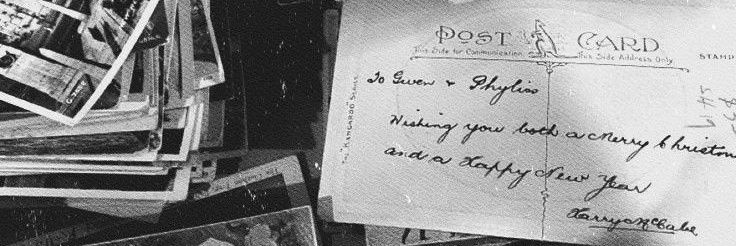 POST CARD
This Side for Communication. This Side Address Only.
STAMP
THE "KANGAROO" SERIES
To Gwen & Phyliss
Wishing you both a Merry Christm
and a Happy New Year
Harry McCabe